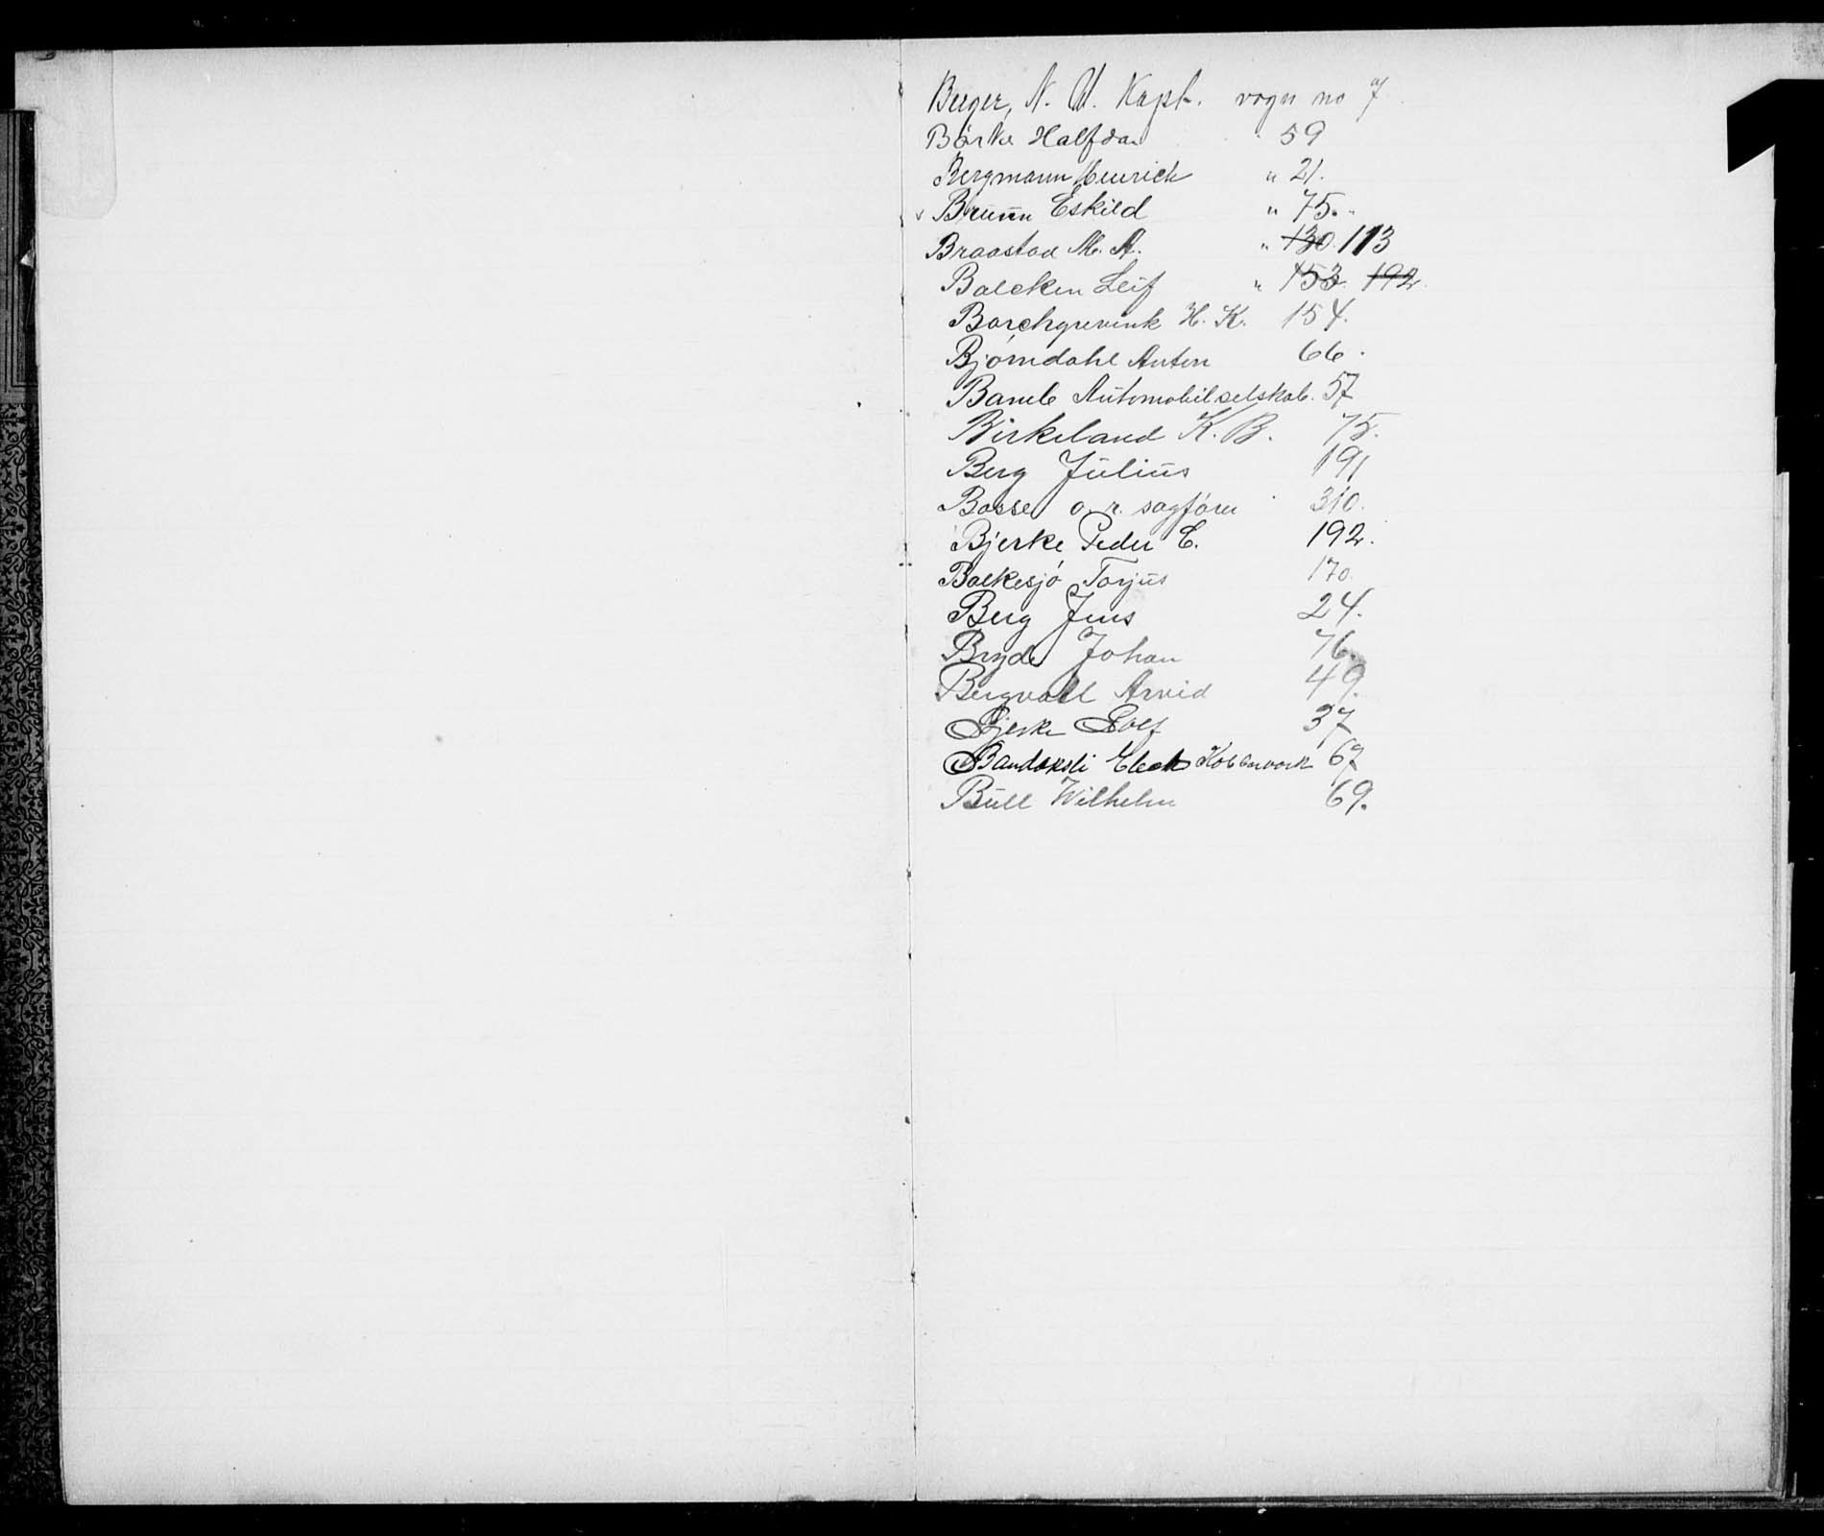 Berger, N. U. Kapt. vogn no 7
Börke Halfdan " 59
Bergmann Heinrich " 21.
v Bruun Eskild " 75.
Braastad M. A. " 130. 113
Baleken Leif " 153. 192.
Borchgrevink H. K. 154.
Bjørndahl Anton 66.
Bamle Automobilselskab. 57
Birkeland K. B. 75.
Berg Julius 191
Basse o. r. sagfører 310.
Bjerke Peder E. 192.
Bolkesjø Torjus 170.
Berg Jens 24.
Bryde Johan 76.
Bergvall Arvid 49.
Bjerke Rolf 37
Bandaksli Elect. Kobberverk 67
Bull Wilhelm 69.